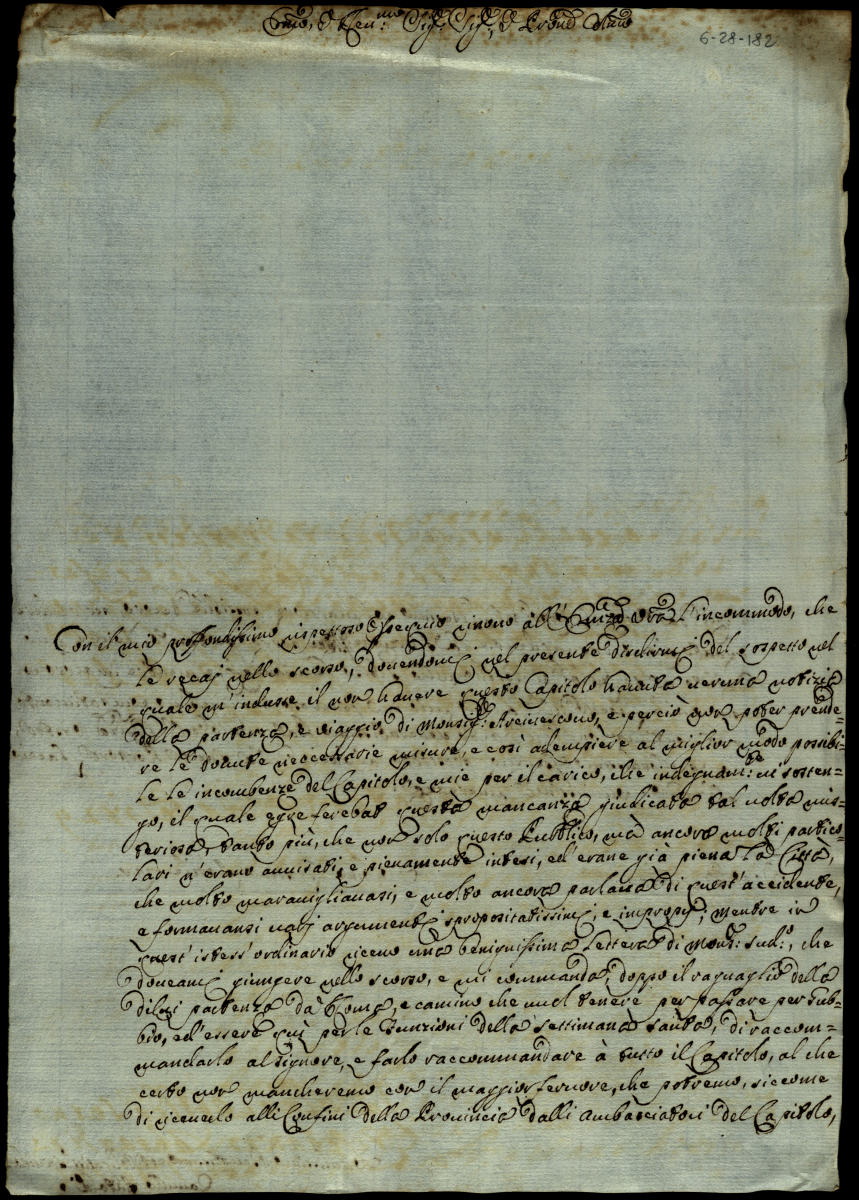 Emo, e Reu:mo Sig:r Sig:r, e Prone Umo
6-28-182
Con il mio profondissimo rispettoso Ossequio vnono all' l'incommodo, che
le recaj nello scorso, douendomi nel presente del sospetto nel
quale m' indusse il non hauere questo Capitolo hauuta ueruna notizia
della partenza, e uiaggio di Monsig:r Arciuescouo, e perciò non poter prende=
re le douute neccessarie misure, e così adempiere al miglior modo possibi=
le le incombenze del Capitolo, e mie per il carico, che indegnam:te ui sosten=
go, il quale egre ferebat questa mancanza giudicata tal uolta mis=
teriosa, tanto più, che non solo questo Pubblico, mà ancora molti partico=
lari n' erano auuisati, e pienamente intesi, ed' erane già piena la Città,
che molto marauigliauasi, e molto ancora parlaua di quest' accidente,
e formauansi uarj argomenti spropositatissimi, e improprj; mentre in
quest' istess' ordinario riceuo una benignissima lettera di Mons: sud:o, che
doueami giungere nello scorso, e mi commanda, doppo il raguaglio della
di lui partenza da Roma, e camino che uuol tenere per passare per Gub=
bio, ed' essere quì per le Funzioni della Settimana santa, di raccom=
mandarlo al Signore, e farlo raccommandare à tutto il Capitolo, al che
certo non mancheremo con il maggior feruore, che potremo, siccome
di riceuerlo alli Confini della Prouincia dalli Ambasciatori del Capitolo,